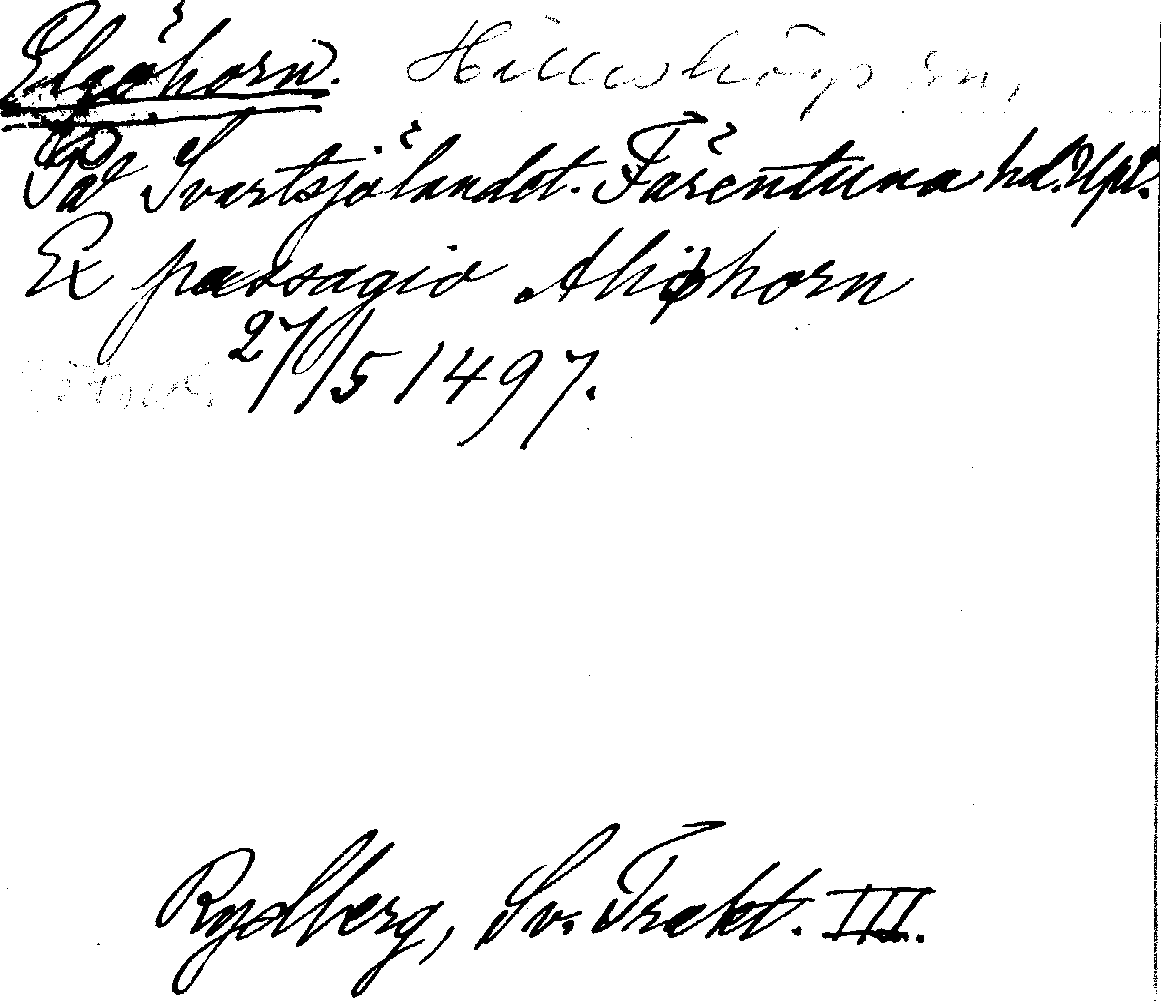 Elgöhorn. Hilleshögs sn,
På Svartsjölandet. Färentuna hd. Upl.
Ex passagio Alhiøhorn
27/5 1497.
Rydberg, Sv. Trakt. III.